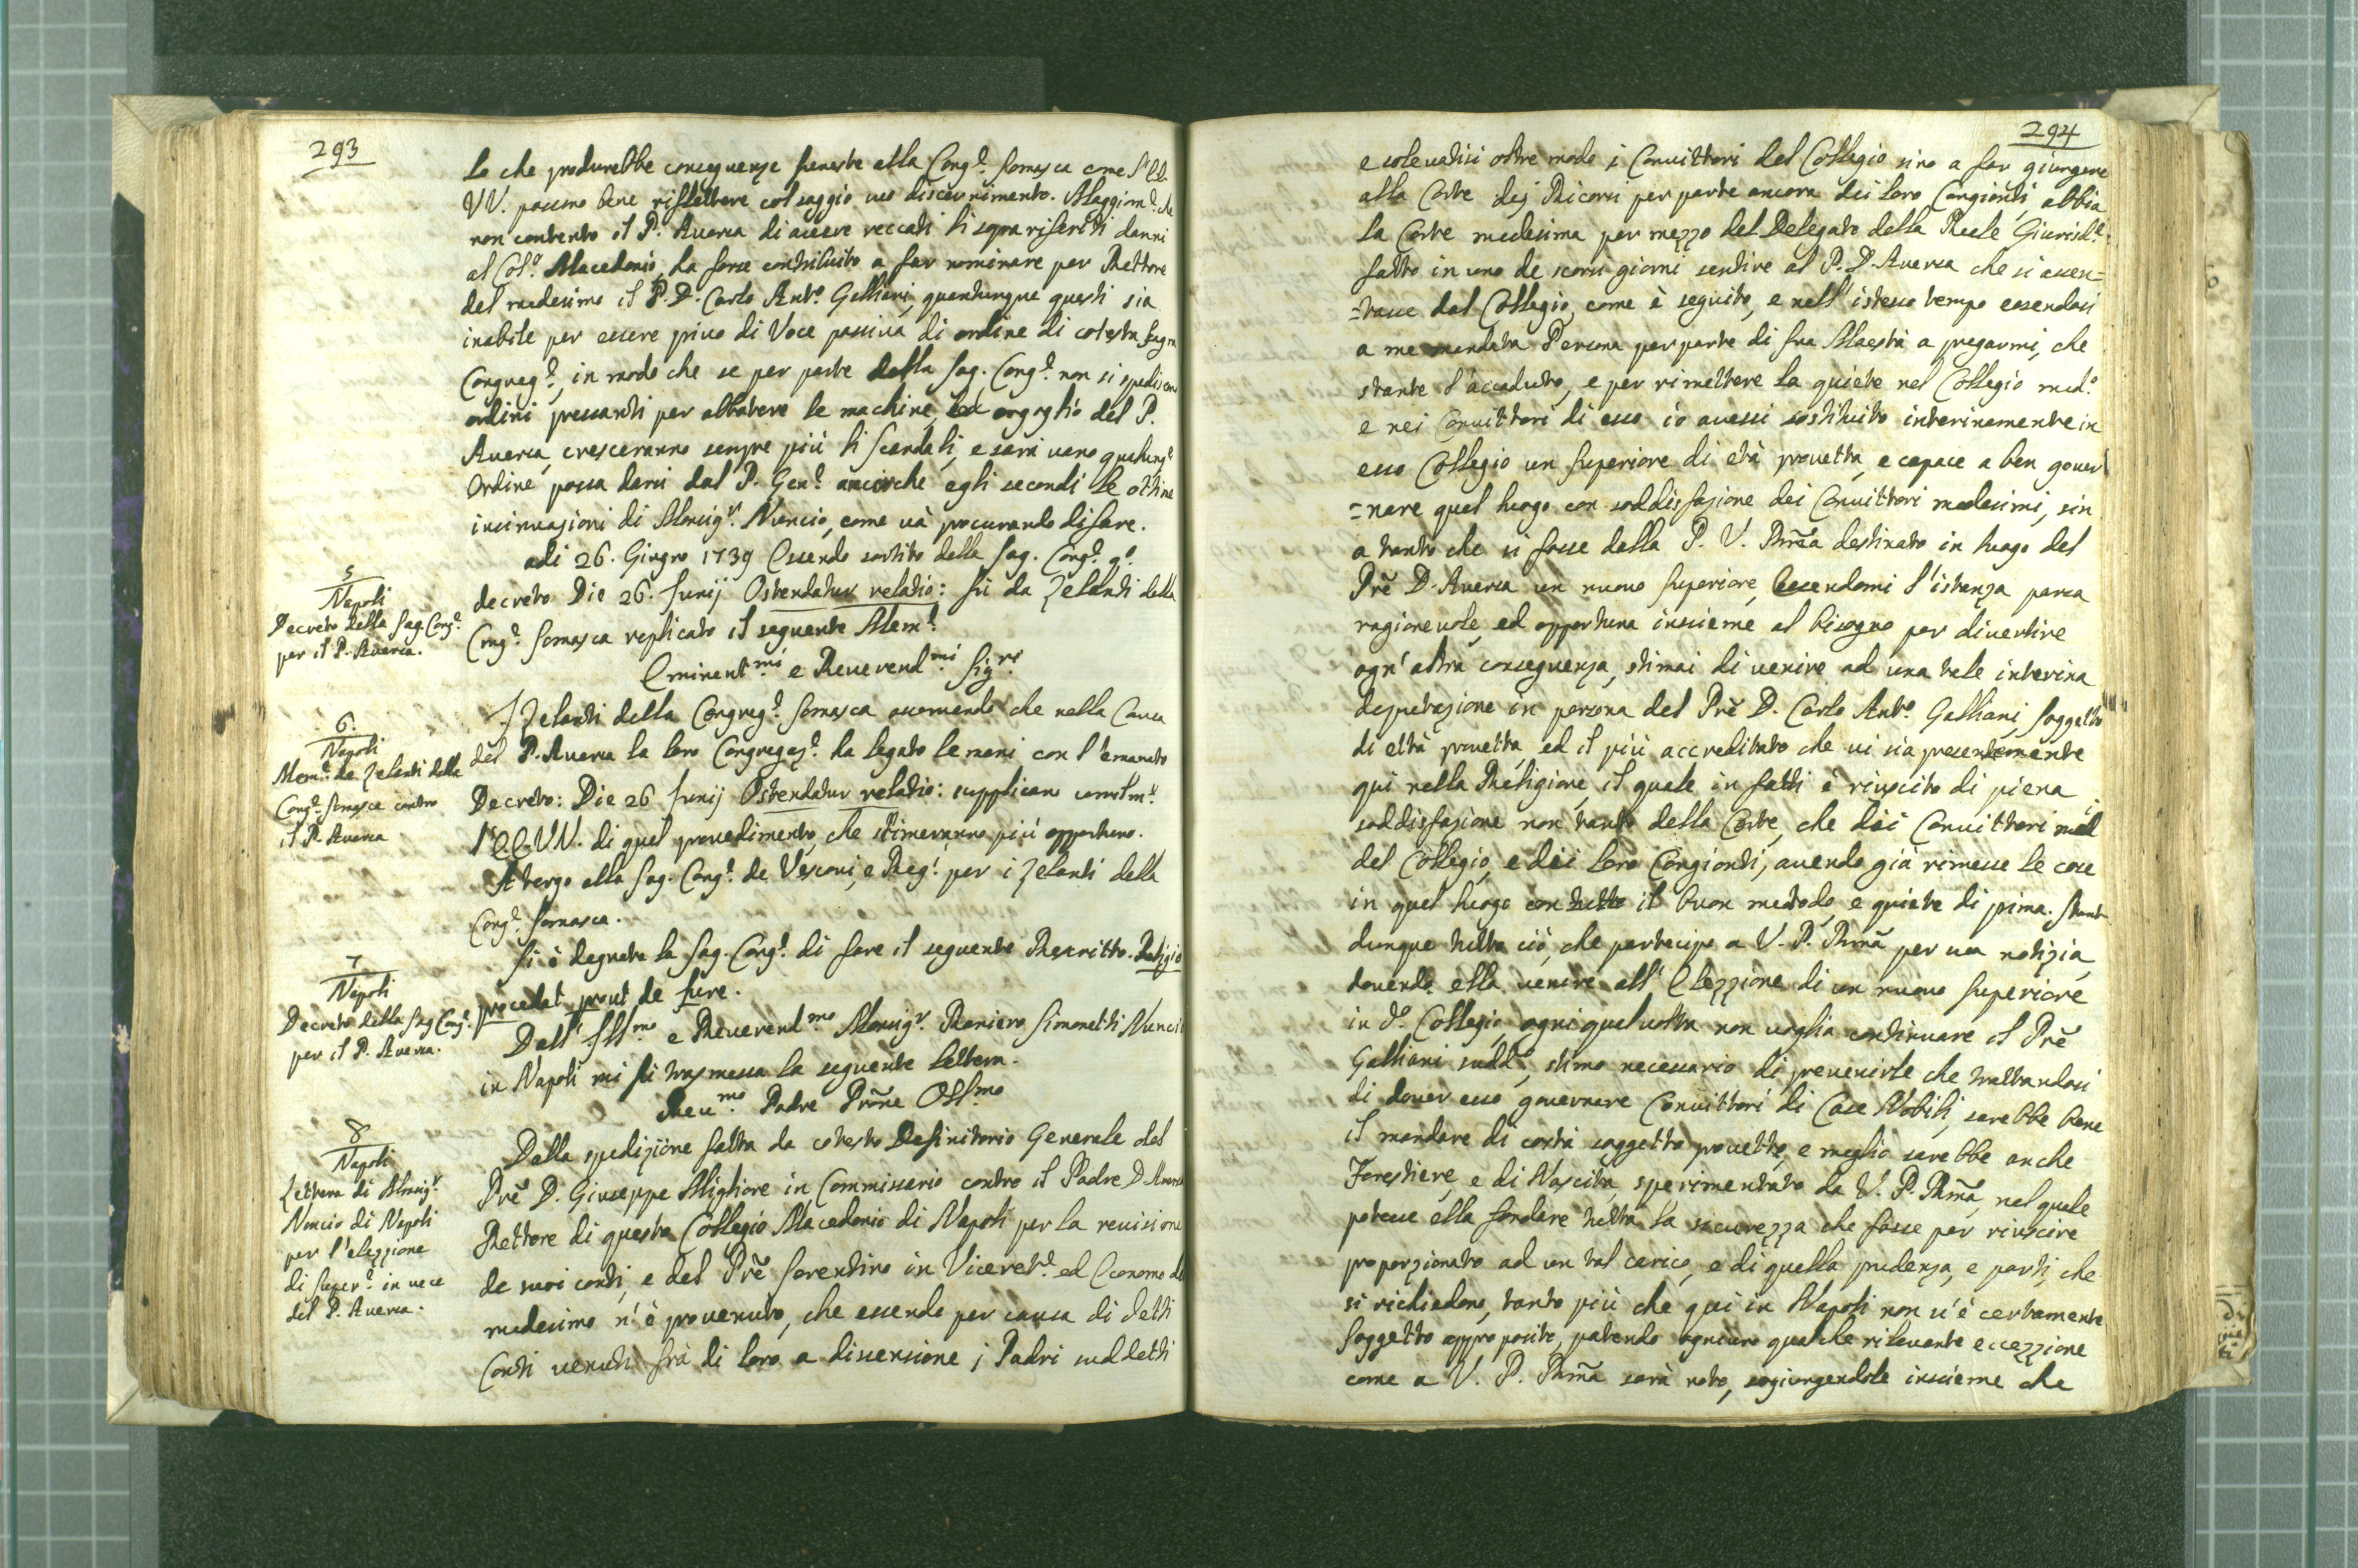 293
lo che produrebbe conseguenze funeste alla Cong.e Somasca come l'EE.
VV. possono bene riflettere col saggio uo discernimento. Maggiorm.e che
non contento il P. Auersa di auere reccati li sopra riferiti danni
al Col.o Macedonio, ha forse contribuito a far nominare per Rettore
del medesimo il P. D. Carlo Ant.o Galliani, quantunque questi sia
inabile per essere priuo di Voce passiua di ordine di cotesta Sagra
Congreg.e, in modo che se per parte della Sag. Cong.e non si spediscono
ordini pressanti per abbatere le machine, ed orgoglio del P.
Auersa, cresceranno sempre più li scandali, e sarà uano qualunq.e
Ordine possa darsi dal P. Gen.e ancorche egli secondi le ottime
insinuazioni di Monsig.r Nuncio, come uà procurando di fare.
adi 26. Giugno 1739 Essendo sortito dalla Sag. Cong.e q.o
decreto Die 26. Junij Ostendatur relatio: fù da Zelanti della
Cong.e Somasca replicato il seguente Mem.e
Eminent.mi e Reuerend.mi Sig.ri
I Zelanti della Congreg.e Somasca osseruando che nella Causa
del P. Auersa la loro Congregaz.e ha legato le mani con l'emanato
Decreto: Die 26 Junij Ostendatur relatio: supplicano umilm.e
l'EE. VV. di quel prouedimento, che stimeranno più opportuno.
A tergo alla Sag. Cong.e de Vescoui, e Reg.i per i Zelanti della
Cong.e Somasca.
Si è degnata la Sag. Cong.e di fare il seguente Rescritto. Religio
procedat prout de Jure.
Dall' Ill.mo e Reuerend.mo Monsig.r Raniero Simonetti Nuncio
in Napoli mi fù trasmessa la seguente lettera.
Reu.mo Padre Prone Oss.mo
Dalla spedizione fatta da cotesto Definitorio Generale del
Prẽ D. Giuseppe Migliore in Commissario contro il Padre D. Auersa
Rettore di questo Collegio Macedonio di Napoli per la reuisione
de suoi conti, e del Prẽ Sorentino in Viceret.e ed Economo del
medesimo n'è prouenuto, che essendo per causa di detti
Conti uenuti frà di loro a dissensione i Padri suddetti
5
Napoli
Decreto della Sag. Cong.e
per il P. Auersa.
6.
Napoli
Mem.e de Zelanti della
Cong.e Somasca contro
il P. Auersa
7
Napoli
Decreto della Sag. Cong.e
per il P. Auersa.
8
Napoli
Lettera di Monsig.r
Nuncio di Napoli
per l'elezzione
di Super.e in uece
del P. Auersa.
294
e soleuatisi oltre modo i Conuittori del Collegio sino a far giungere
alla Corte dej Ricorsi per parte ancora dei loro Congionti, abbia
la Corte medesima per mezzo del Delegato della Reale Giurisd.e
fatto in uno de scorsi giorni sentire al P. D. Auersa che si assen=
=tasse dal Collegio, come è seguito, e nell' istesso tempo essendosi
a me mandata Persona per parte di Sua Maestà a pregarmi, che
stante l'accaduto, e per rimettere la quiete nel Collegio med.o
e nei Conuittori di esso io auessi sostituito interinamente in
esso Collegio un Superiore di età prouetta, e capace a ben gouer
=nare quel luogo con soddisfazione dei Conuittori medesimi, sin
a tanto che si fosse dalla P. V. Rmã destinato in luogo del
Prẽ D. Auersa un nuouo Superiore, essendomi l'istanza parsa
ragioneuole, ed opportuna insieme al bisogno per diuertire
ogn' altra conseguenza, stimai di uenire ad una tale interina
deputazione in persona del Prẽ D. Carlo Ant.o Galliani, soggetto
di ettà prouetta, ed il più accreditato che ui sia presentemente
qui nella Religione, il quale in fatti è riuscito di piena
soddisfazione non tanto della Corte, che dei Conuittori
del Collegio, e dei loro Congionti, auendo già rimesse le cose
in quel luogo con tutto il buon metodo, e quiete di prima. Stante
dunque tutto ciò, che partecipo a V. P. Rmã per ua notizia,
douendo ella uenire all' Elezzione di un nuouo Superiore
in d.o Collegio, ogni qual uolta non uoglia continuare il Prẽ
Galliani sudd.o, stimo necessario di preuenirle che trattandosi
di douer esso gouernare Conuittori di Case Nobili, sarebbe bene
il mandare di costà soggetto prouetto, e meglio sarebbe anche
Forestiere, e di Nascita, sperimentato da V. P. Rmã, nel quale
potesse ella fondare tutta la sicurezza che fosse per riuscire
proporzionato ad un tal carico, e di quella prudenza, e parti, che
si richiedono, tanto più che qui in Napoli non u'è certamente
Soggetto approposito, patendo ogniuno qualche rileuante eccezzione
come a V. P. Rmã sarà noto, sogiungendole insieme che